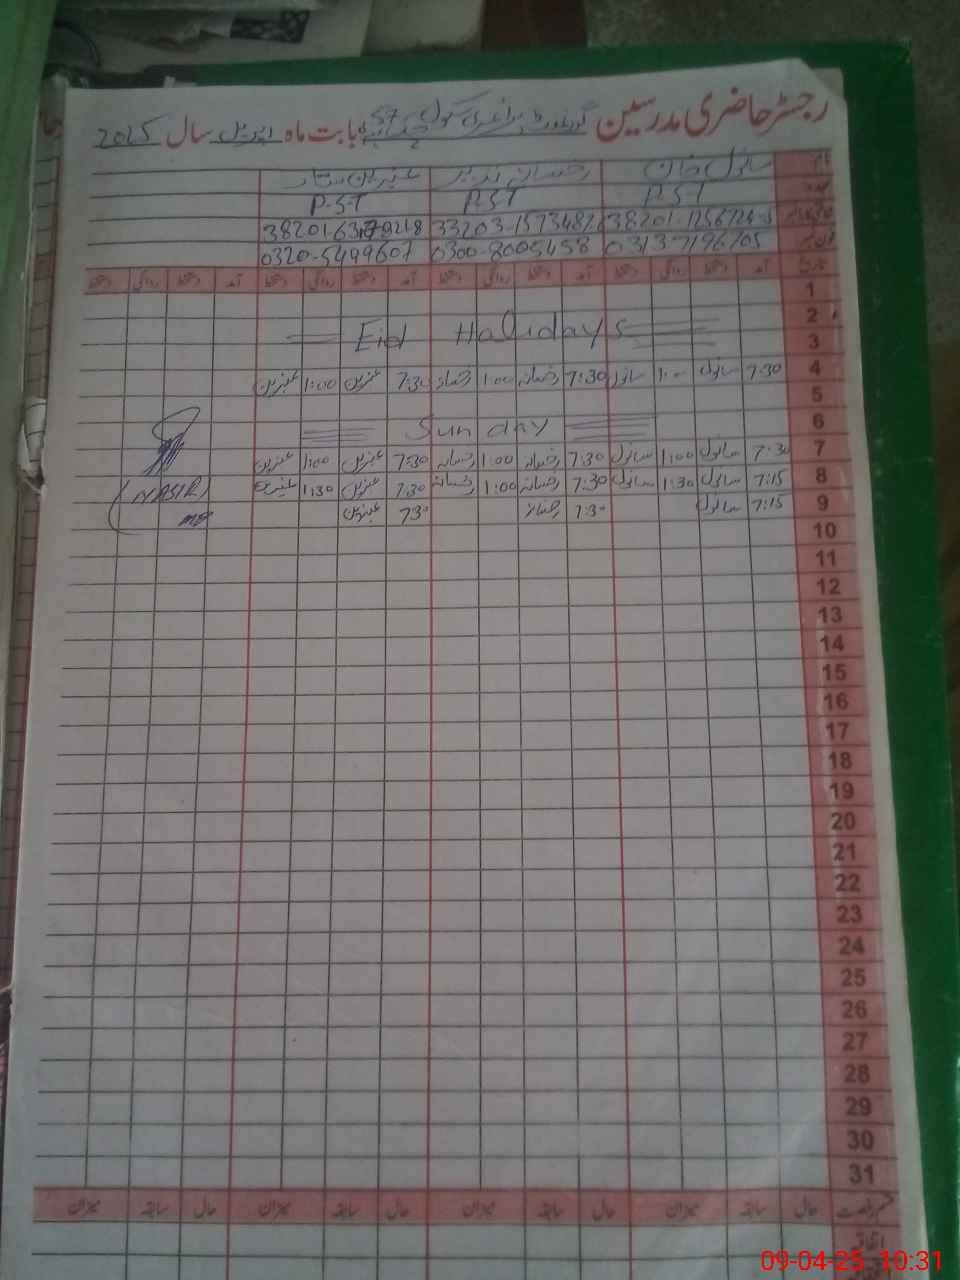 رجسٹر حاضری مدرسین گورنمنٹ پرائمری سکول 57 بابت ماہ اپریل سال 2025
نام سانول خان رخسانہ نذیر عنبرین ستار
عہدہ P.S.T P.S.T P.S.T
38201-1256724-3 33203-1573482
0313-7196705 0300-8005458 0320-5499607
تاریخ آمد دستخط روانگی دستخط آمد دستخط روانگی دستخط آمد دستخط روانگی دستخط آمد دستخط روانگی دستخط
1
2
Eid Halidays
3
4 7:30 سانول 1:00 سانول 7:30 رخسانہ 1:00 رخسانہ 7:30 عنبرین 1:00 عنبرین
5
6 Sunday
7 7:30 سانول 1:00 سانول 7:30 رخسانہ 1:00 رخسانہ 7:30 عنبرین 1:00 عنبرین
8 7:15 سانول 1:30 سانول 7:30 رخسانہ 1:00 رخسانہ 7:30 عنبرین 1:30 عنبرین (NASIR)
9 7:15 سانول 7:30 رخسانہ 730 عنبرین
10
11
12
13
14
15
16
17
18
19
20
21
22
23
24
25
26
27
28
29
30
31
قسم رخصت حال سابقہ میزان حال سابقہ میزان حال سابقہ میزان حال سابقہ میزان
اتفاقیہ
09-04-25 10:31